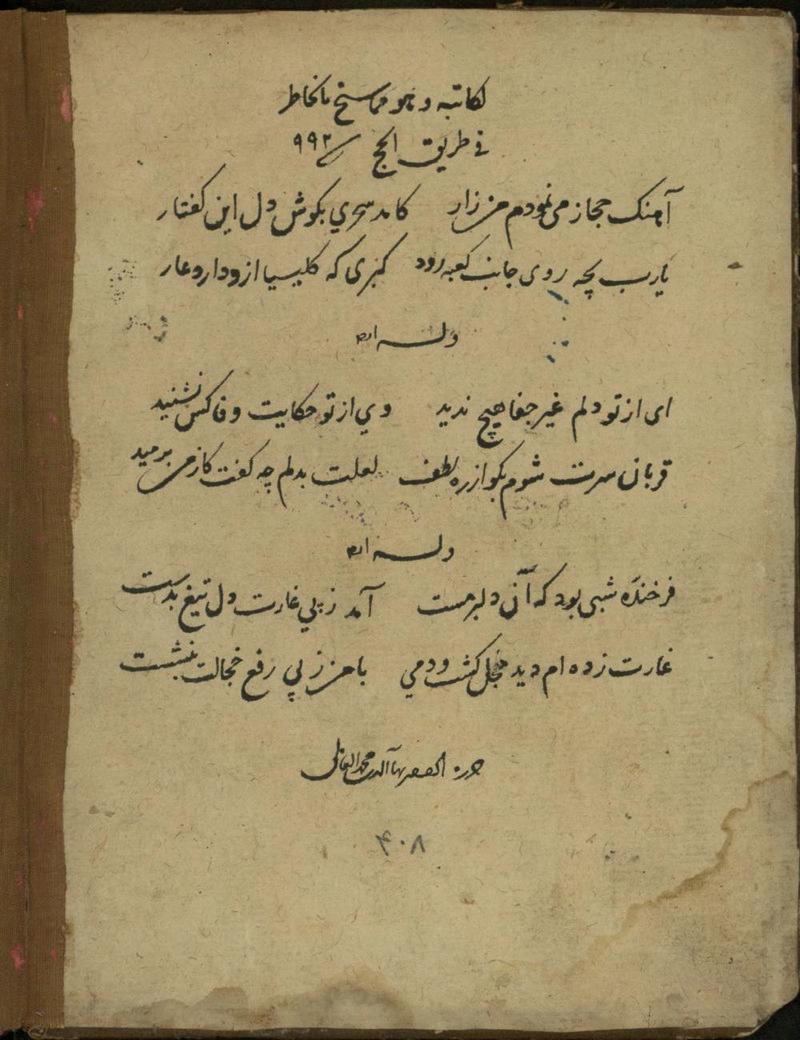 لكاتبه وهو مما سنح بالخاطر
في طريق الحج سنه ٩٩٢
آهنک حجاز می نمودم من زار کامد سحری بکوش دل این کفتار
یارب بچه روی جانب کعبه رود کبری که کلیسیا ازو دارد عار
وله ايضا
ای از تو دلم غیر جفا هیچ ندید وی از تو حکایت وفا کس نشنید
قربان سرت شوم بکو از ره لطف لعلت بدلم چه کفت کز من برمید
وله ايضا
فرخنده شبی بود که آن دلبر مست آمد ز پی غارت دل تیغ بدست
غارت زده ام دید خجل کشت و دمی با من ز پی رفع خجالت بنشست
حرره الفقير بهاء الدين محمد العاملي
۴۰۸